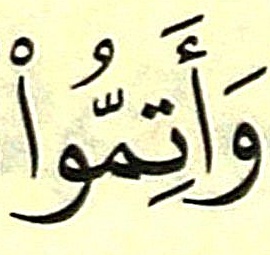 وَأَتِمُّواْ